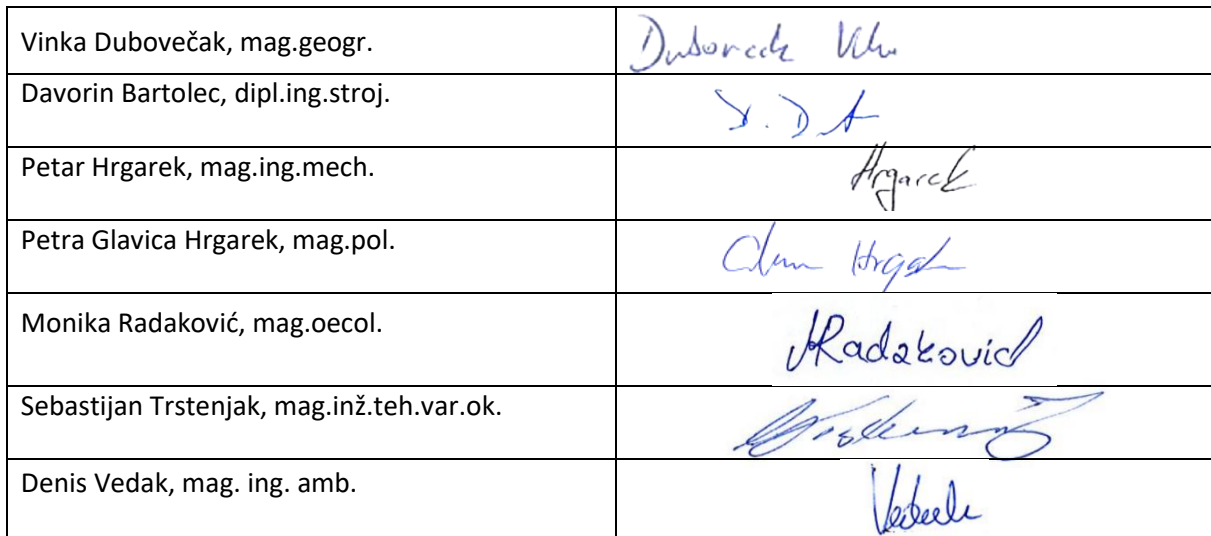 Vinka Dubovečak, mag.geogr.
Davorin Bartolec, dipl.ing.stroj.
Petar Hrgarek, mag.ing.mech.
Hrgarek
Petra Glavica Hrgarek, mag.pol.
Monika Radaković, mag.oecol.
MRadaković
Sebastijan Trstenjak, mag.inž.teh.var.ok.
Denis Vedak, mag. ing. amb.